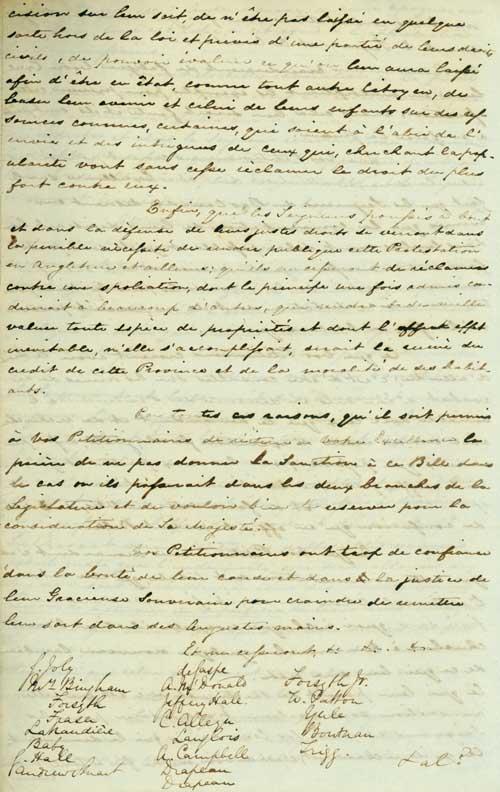 cision sur leur sort, de n'être pas laissé en quelque
sorte hors de la loi et privés d'une partie de leurs droits
civils, de pouvoir évaluer ce qu'on leur aura laissé
afin d'être en état, comme tout autre Citoyen, de
baser leur avenir et celui de leurs enfants sur des res
sources connues, certaines, qui soient à l'abri de l'
envie et des intrigues de ceux qui, cherchant la pop
ularité vont sans cesse réclamer le droit du plus
fort contre eux.
Enfin, que les Seigneurs poussés à bout
et dans la défense de leurs justes droits se verront dans
la pénible nécessité de rendre publique cette Protestation
en Angleterre et ailleurs; qu'ils ne cesseront de réclamer
contre une spoliation, dont le principe une fois admis con
duirait à beaucoup d'autres, qui rendrait de nulle
valeur toute espèce de propriétés et dont l'effet
inévitable, si elle s'accomplissait, serait la ruine du
crédit de cette Province et de la moralité de ses habit
ants.
tes ces raisons, qu'il soit permis
à vos Petitionnaires de Votre Excellence la
prière de ne pas donner la Sanction à ce Bill dans
le cas où ils passerait dans les deux branches de la
Législature et de vouloir bien le reserver pour la
considération de Sa Majesté.
Vos Petitionnaires ont trop de confiance
dans la bonté de leur cause et dans la justice de
leur Gracieuse Souveraine pour craindre de remettre
leur sort dans ses Augustes mains.
Et ne cesseront, &c. &c. &c.
J. Joly deGaspé Forsyth Jr.
Bingham A. McDonald W. Patton
Forsyth Jeffery Hall Yule
Fraser C. Allegu Boudreau
Lanaudière Langlois Trigg.
Baby A. Campbell
Hall Drapeau
Andrew Stuart Drapeau